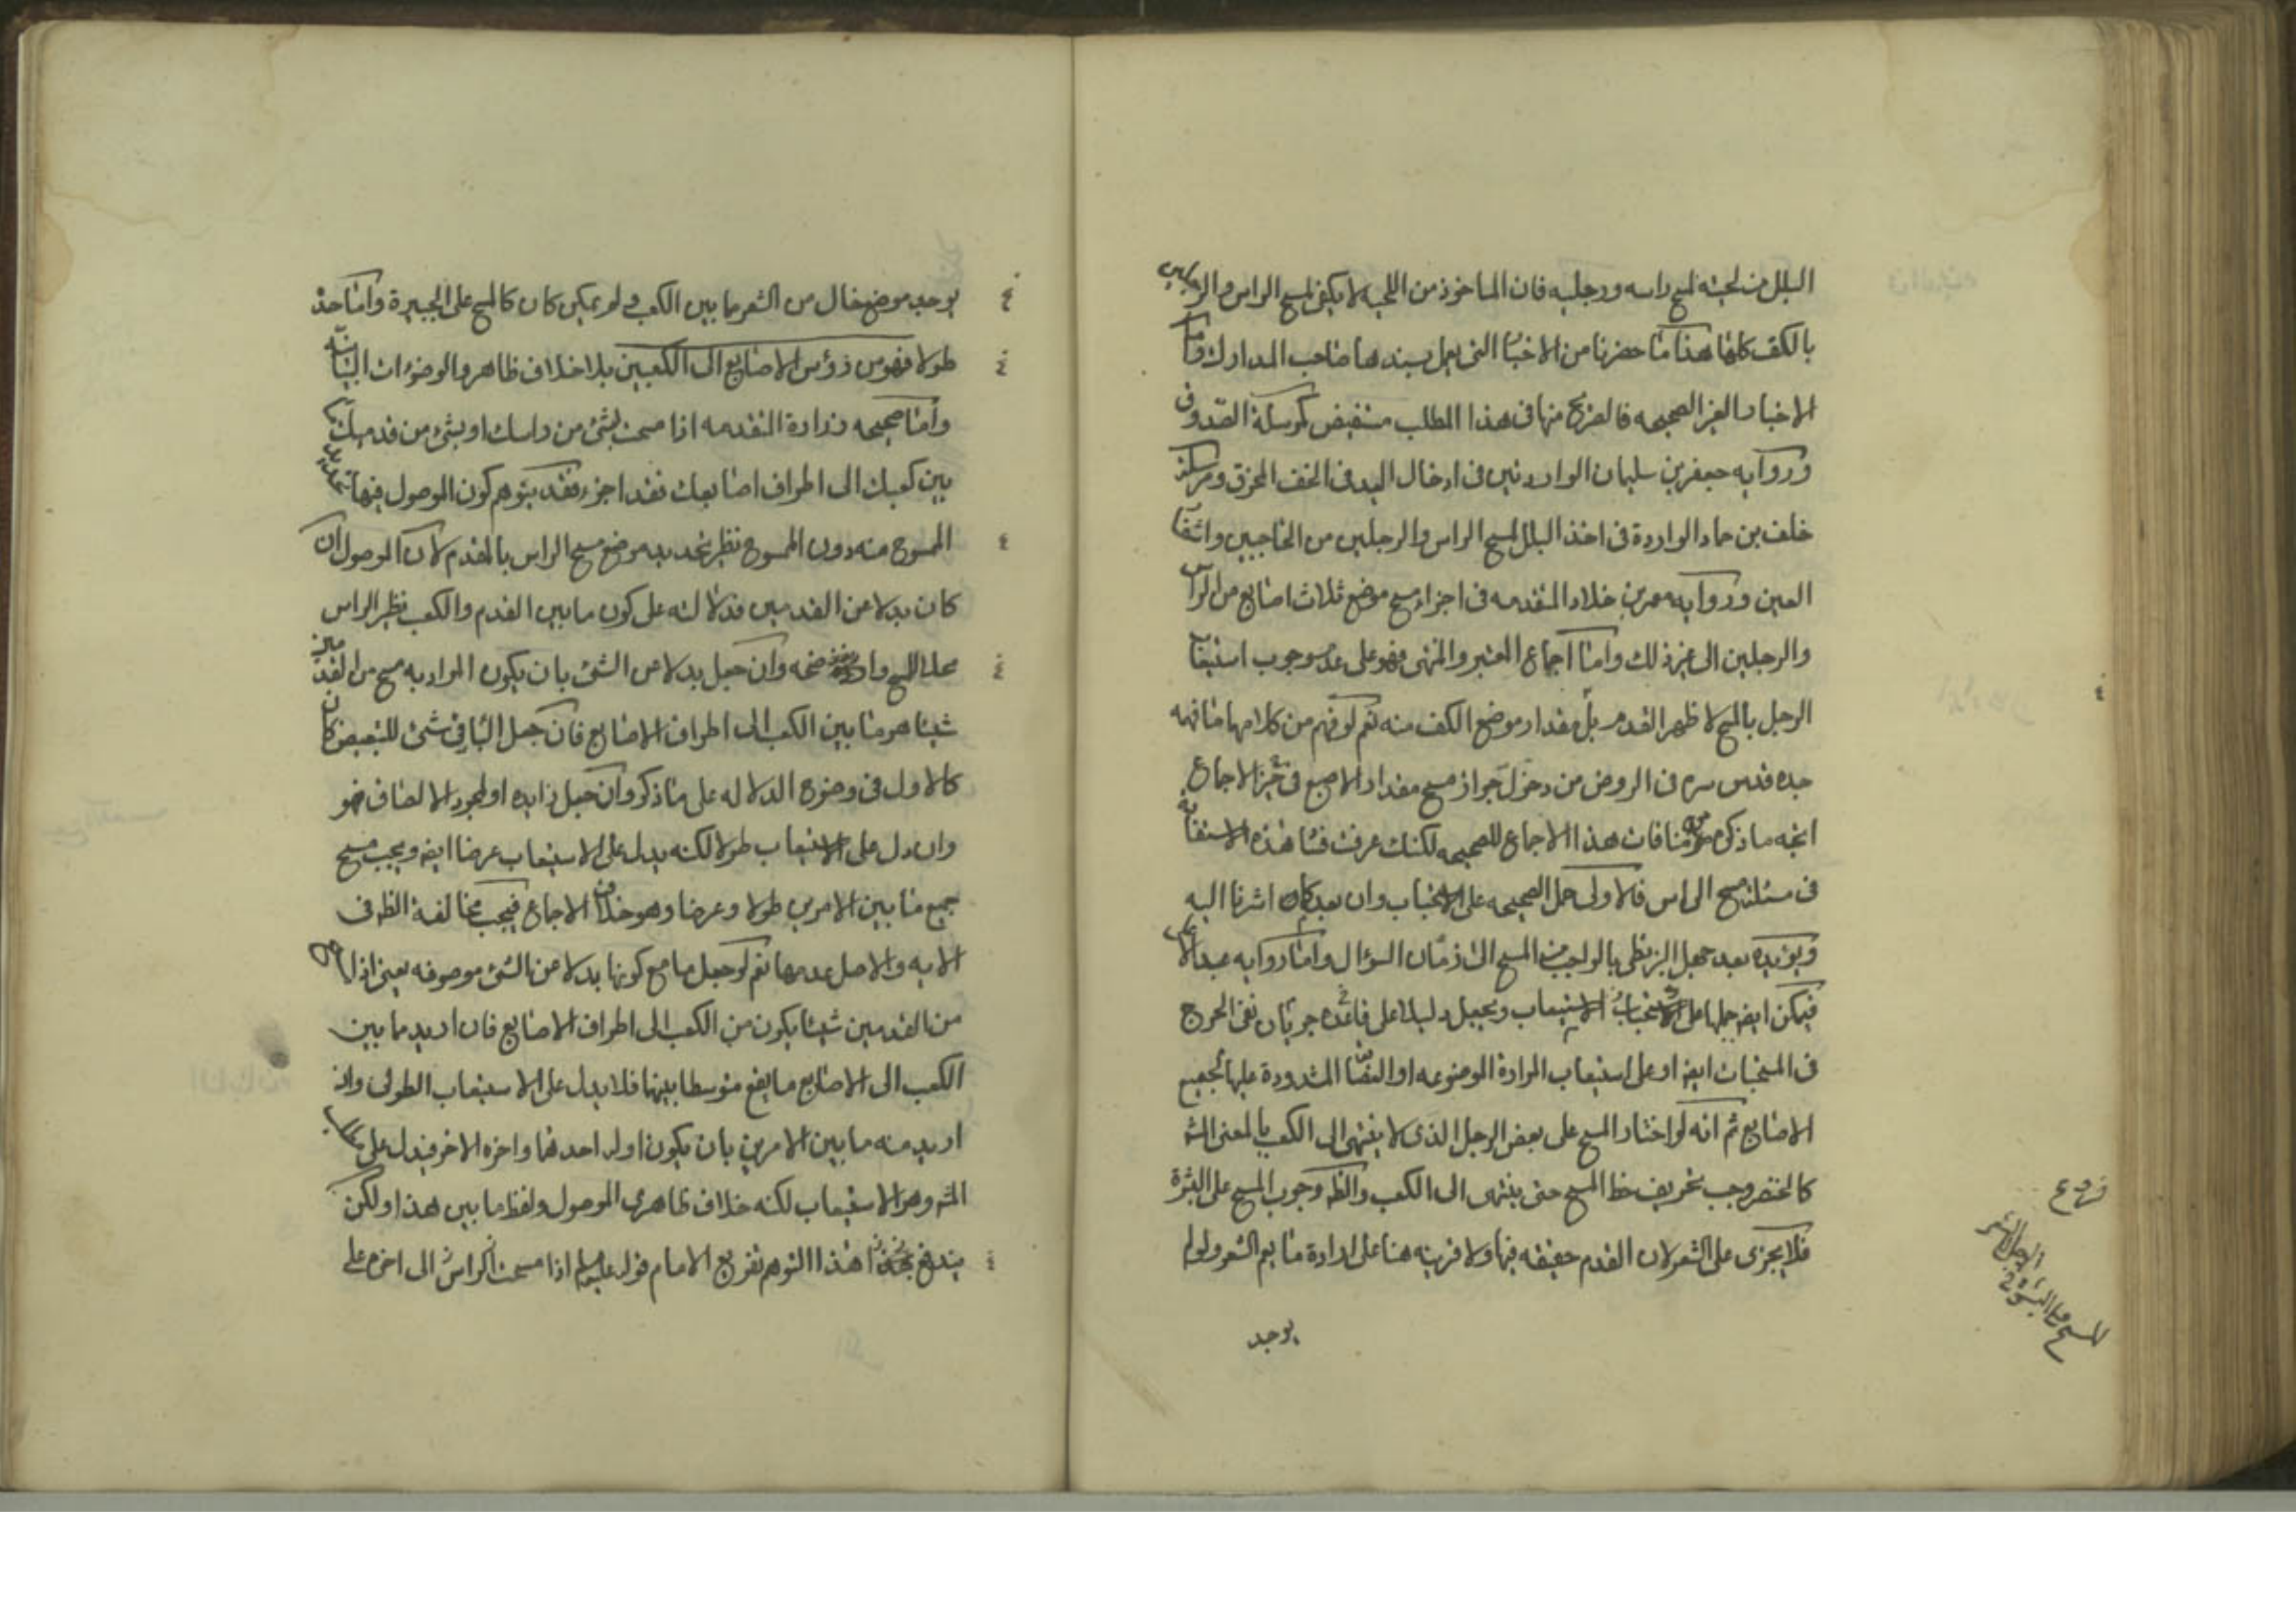 البلل من لحيته لمسح راسه ورجليه فان الماخوذ من اللحيه لا يكفى لمسح الراس والرجلين
بالكف كلها هذا ما حضرنا من الاخبار التى يعمل بسندها صاحب المدارك واما
الاخبار الغير الصحيحه فالصريح منها فى هذا المطلب مستفيض كمرسلة الصدوق
ورواية جعفر بن سليمان الواردتين فى ادخال اليد فى الخف المخرق ومرسلة
خلف بن حماد الواردة فى اخذ البلل لمسح الراس والرجلين من الحاجبين واشفار
العين ورواية معمر بن خلاد المتقدمه فى اجزاء مسح موضع ثلاث اصابع من الراس
والرجلين الى غير ذلك واما اجماع المعتبر والمنتهى فهو على عدم وجوب استيعاب
الرجل بالمسح لا ظهر القدم بل مقدار موضع الكف منه نعم لو فهم من كلامهما ما فهمه
جده قدس سره فى الروض من دخول جواز مسح مقدار الاصبع فى حيز الاجماع
اتجه ما ذكره من منافات هذا الاجماع للصحيحه لكنك عرفت فساد هذه الاستفادة
فى مسئلة مسح الراس فالاولى حمل الصحيحه على الاستحباب وان بعد كما اشرنا اليه
ويؤيده بعد جهل البزنطى بالواجب من المسح الى زمان السؤال واما رواية عبد الاعلى
فيمكن ايضا حملها على استحباب الاستيعاب ويجعل دليلا على قاعدة جريان نفى الحرج
فى المستحبات ايضا او على استيعاب المرارة الموضوعه او العصابة المشدودة عليها لجميع
الاصابع ثم انه لو اختار المسح على بعض الرجل الذى لا ينتهى الى الكعب بالمعنى المشه
كالخنصر وجب تحريف خط المسح حتى ينتهى الى الكعب والظه وجوب المسح على البشرة
فلا يجزى على الشعر لان القدم حقيقه فيها ولا قرينه هنا على ارادة ما يعم الشعر ولو لم
يوجد
فروع
المسح على البشرة فى
يوجد موضع خال من الشعر ما بين الكعب ولم يمكن كان كالمسح على الجبيرة واما حده
طولا فهو من رؤس الاصابع الى الكعبين بلا خلاف ظاهر والوضوءات البيانيه
واما صحيحه زرارة المتقدمه اذا مسحت بشئ من راسك او بشئ من قدميك ما
بين كعبيك الى اطراف اصابعك فقد اجزء فقد يتوهم كون الموصول فيها
الممسوح منه دون الممسوح نظير تحديد موضع مسح الراس بالمقدم لان الموصول ان
كان بدلا عن القدمين فدلالته على كون ما بين القدم والكعب نظير الراس
محلا للمسح واضحه وان جعل بدلا عن الشئ بان يكون المراد به مسح من القدمين
شيئا هو ما بين الكعب الى اطراف الاصابع فان جعل الباء فى شئ للتبعيض كان
كالاول فى وضوح الدلاله على ما ذكر وان جعل زايده او لمجرد الالصاق فهو
وان دل على الاستيعاب طولا لكنه يدل على الاستيعاب عرضا ايضا ويجب مسح
جميع ما بين الامرين طولا وعرضا وهو خلاف الاجماع فيجب مخالفة الظه فى
الايه والاصل عدمها نعم لو جعل ما مع كونها بدلا عن الشئ موصوفه يعنى اذا
من القدمين شيئا يكون من الكعب الى اطراف الاصابع فان اريد ما بين
الكعب الى الاصابع ما يقع متوسطا بينها فلا يدل على الاستيعاب الطولى وان
اريد منه ما بين الامرين بان يكون اوله احدهما واخره الاخر فيدل على مذهب
المشه وهو الاستيعاب لكنه خلاف ظاهرى الموصول ولفظ ما بين هذا ولكن
يندفع هذا التوهم تفريع الامام قوله عليه السلام اذا مسحت الراس الى اخره على